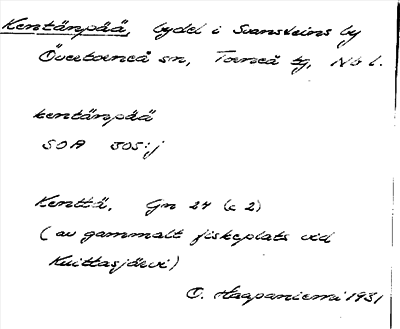 Kentänpää, bydel i Svansteins by
Övertorneå sn, Torneå tg, Nb l.
kentänpää
SOA 305:j
Kenttä, Gn 24 (c 2)
(av gammalt fiskeplats vid
Kuittasjärvi)
O. Haapaniemi 1931